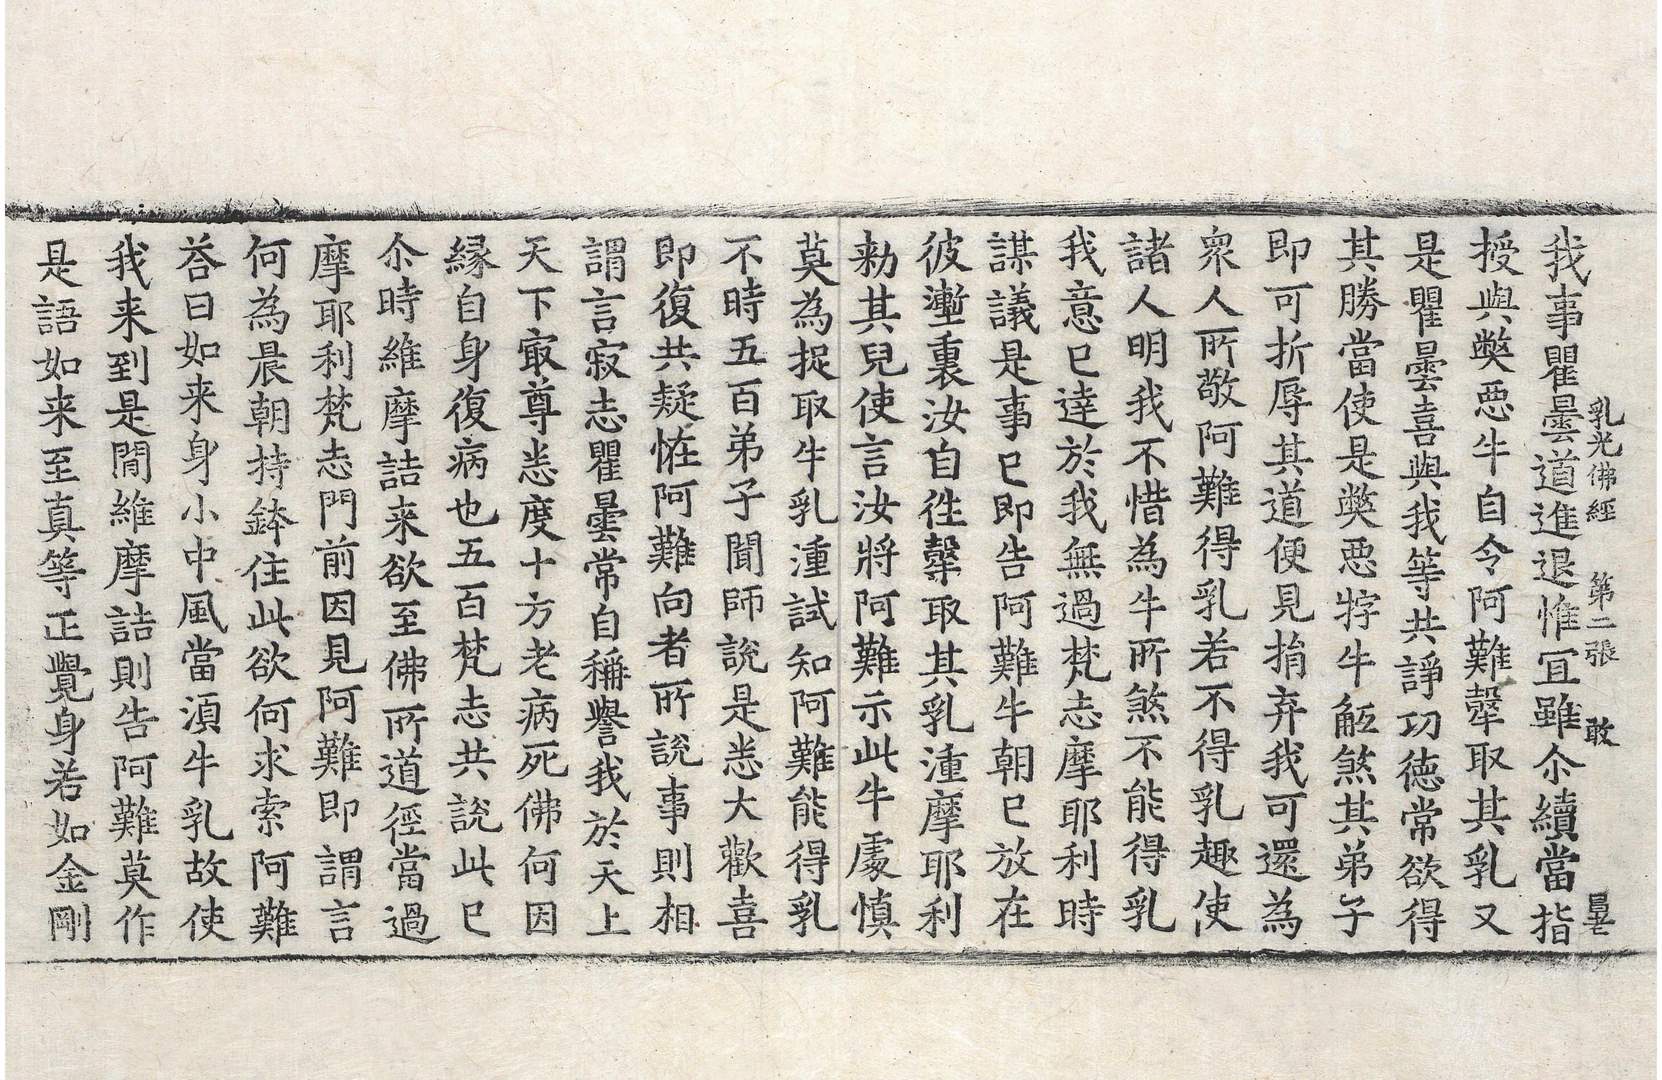 乳光佛經 第二張 敢
我事瞿曇道進退惟冝雖尒續當指
授與弊惡牛自令阿難㲉取其乳又
是瞿曇喜與我等共諍功徳常欲得
其勝當使是弊惡牸牛觝煞其弟子
即可折辱其道便見捐弃我可還為
衆人所敬阿難得乳若不得乳趣使
諸人明我不惜為牛所煞不能得乳
我意已達於我無過梵志摩耶利時
謀議是事已即告阿難牛朝已放在
彼壍裏汝自徃㲉取其乳湩摩耶利
勑其兒使言汝將阿難示此牛處慎
莫為捉取牛乳湩試知阿難能得乳
不時五百弟子聞師說是悉大歡喜
即復共疑恠阿難向者所說事則相
謂言寂志瞿曇常自稱譽我於天上
天下㝡尊悉度十方老病死佛何因
縁自身復病也五百梵志共說此已
尒時維摩詰来欲至佛所道徑當過
摩耶利梵志門前因見阿難即謂言
何為晨朝持鉢住此欲何求索阿難
荅曰如来身小中風當湏牛乳故使
我来到是閒維摩詰則告阿難莫作
是語如来至真等正覺身若如金剛